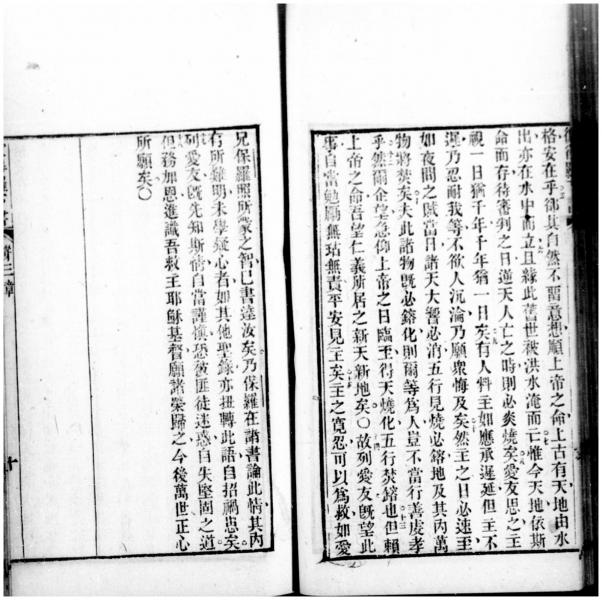 格安在乎卻其自然不留意想順上帝之命上古有天地由水
出亦在水中而立且緣此舊世被洪水淹而亡惟今天地依斯
命而存待審判之日逆天人亡之時則必炎燒矣愛友思之主
視一日猶千年千年猶一日矣有人料主如應承遲延但主不
遲乃忍耐我等不欲人沉淪乃願眾悔及矣然主之日必速至
如夜間之賊當日諸天大響必消五行見燒必鎔地及其內萬
物將焚矣夫此諸物既必鎔化則爾等為人豈不當行善虔孝
乎然爾企望急仰上帝之日臨至得天燒化五行焚鎔也但賴
上帝之命吾望仁義所居之新天新地矣○故列愛友既望此
事自當勉勵無玷無責平安見主矣主之寬忍可以為救如愛
兄保羅照所蒙之智已書達汝矣乃保羅在諸書論此情其內
有所難明未學疑心者如其他聖錄亦扭轉此語自招禍患矣
列愛友既先知斯情自當謹慎恐彼匪徒迷惑自失堅固之道
但務加恩進識吾救主耶穌基督願諸榮歸之今後萬世正心
所願矣○
第三章
十